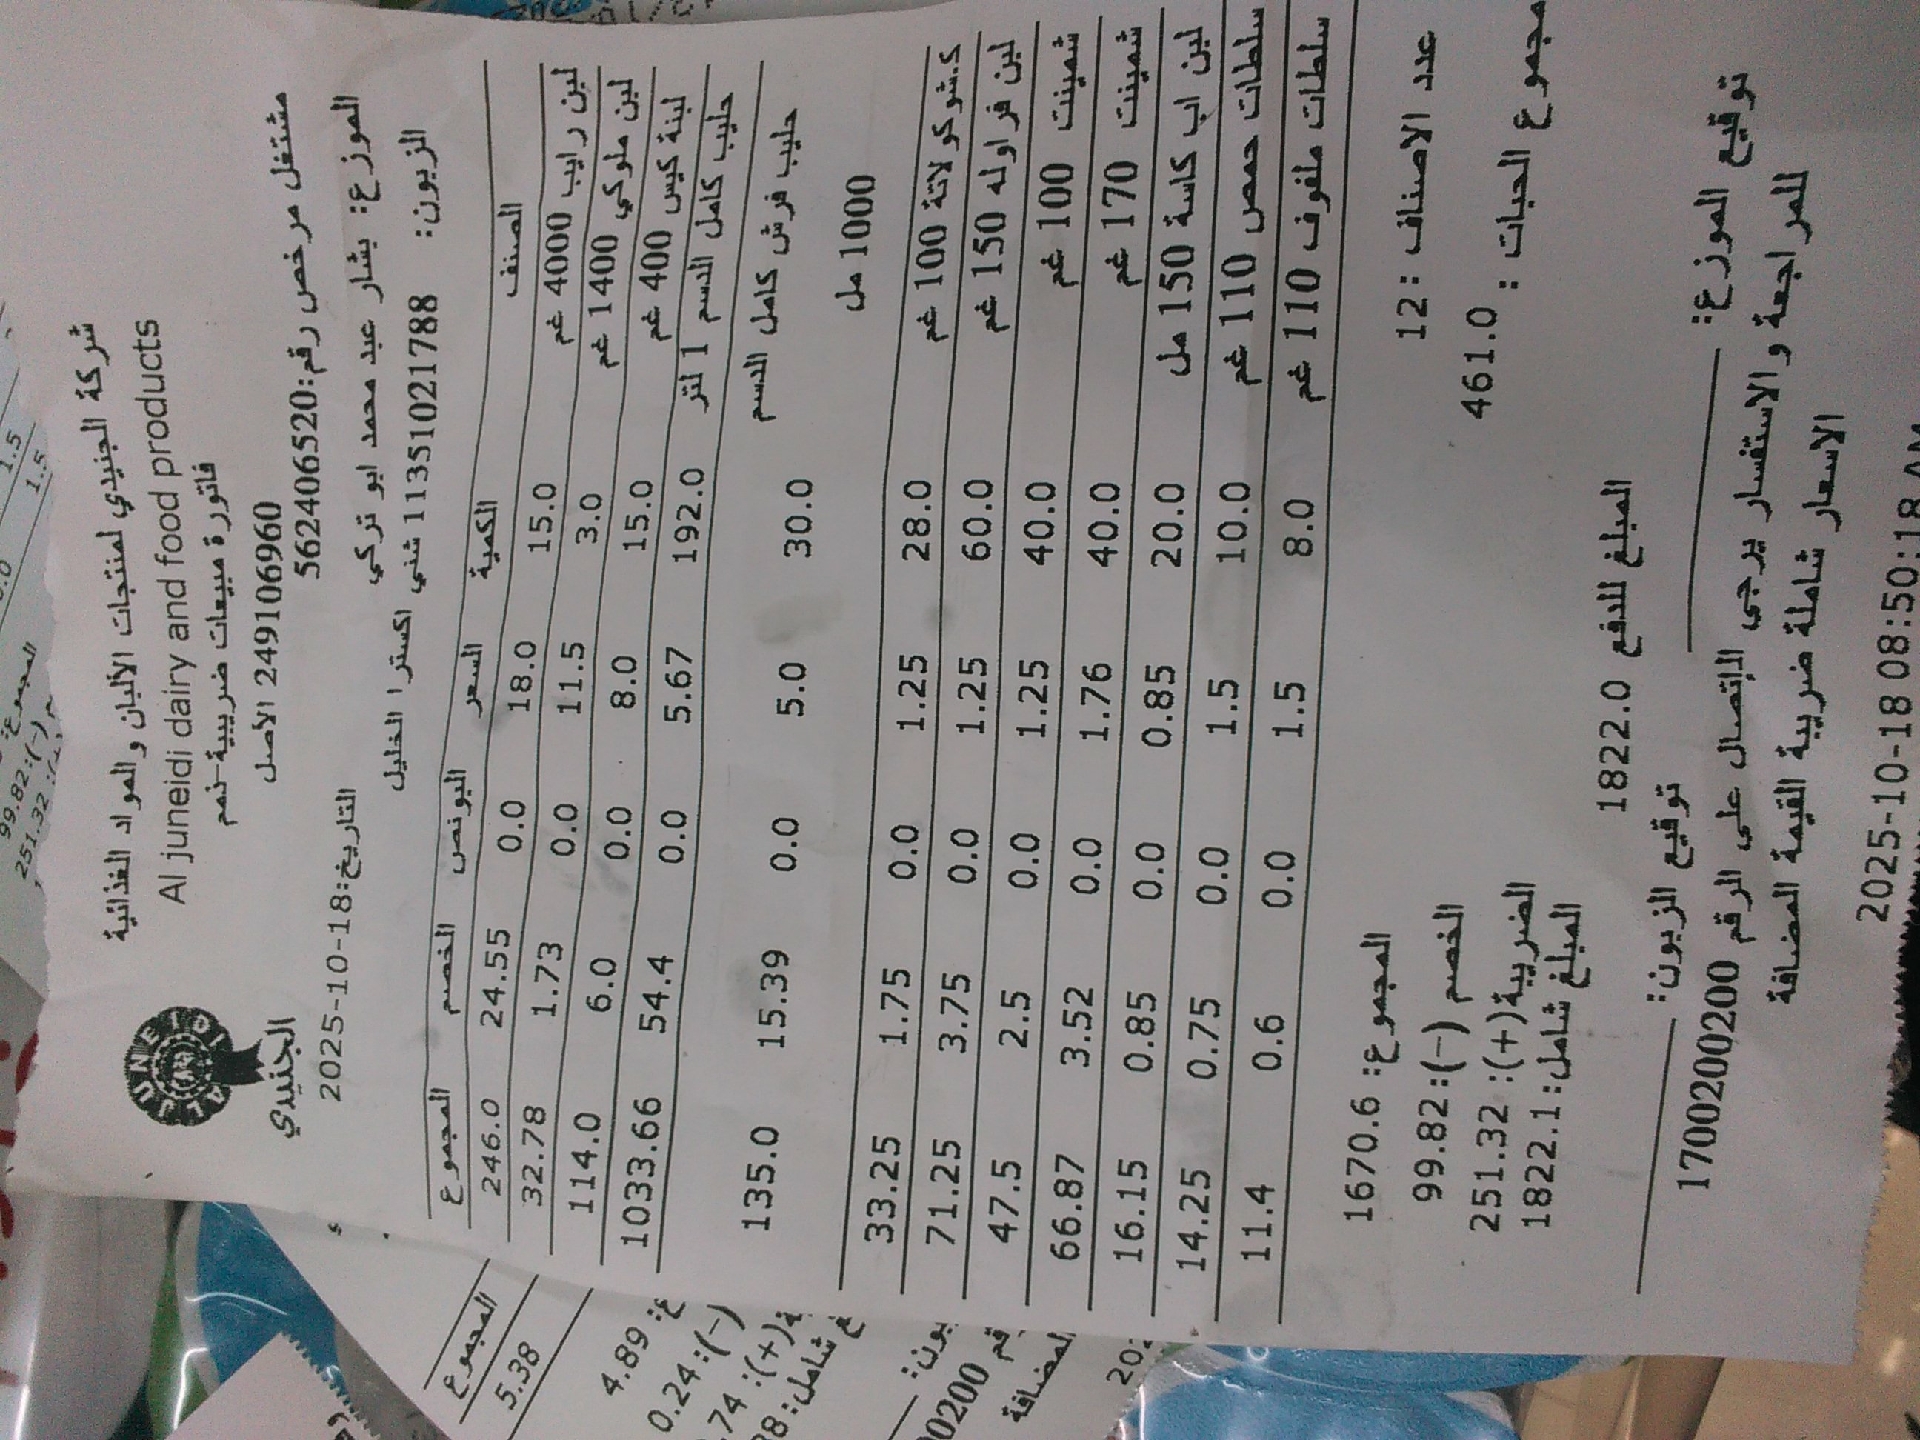 شركة الجنيدي لمنتجات الألبان والمواد الغذائية
Al juneidi dairy and food products
فاتورة مبيعات ضريبية-نهم
AL JUNEIDI
الجنيدي
249106960 الأصل
مشتغل مرخص رقم:562406520
الموزع: بشار عبد محمد ابو تركي
التاريخ:2025-10-18
الزبون: 11351021788 شني اكسترا الخليل
الصنف الكمية السعر البونص الخصم المجموع
لبن رايب 4000 غم 15.0 18.0 0.0 24.55 246.0
لبن ملوكي 1400 غم 3.0 11.5 0.0 1.73 32.78
لبنة كيس 400 غم 15.0 8.0 0.0 6.0 114.0
حليب كامل الدسم 1 لتر 192.0 5.67 0.0 54.4 1033.66
حليب فرش كامل الدسم 30.0 5.0 0.0 15.39 135.0
1000 مل
ك.شوكولاتة 100 غم 28.0 1.25 0.0 1.75 33.25
لبن فراوله 150 غم 60.0 1.25 0.0 3.75 71.25
شمينت 100 غم 40.0 1.25 0.0 2.5 47.5
شمينت 170 غم 40.0 1.76 0.0 3.52 66.87
لبن اب كاسة 150 مل 20.0 0.85 0.0 0.85 16.15
سلطات حمص 110 غم 10.0 1.5 0.0 0.75 14.25
سلطات ملفوف 110 غم 8.0 1.5 0.0 0.6 11.4
عدد الاصناف : 12
المجموع: 1670.6
مجموع الحبات : 461.0
الخصم (-): 99.82
الضريبة(+): 251.32
المبلغ شامل: 1822.1
المبلغ للدفع 1822.0
توقيع الموزع:
توقيع الزبون:
للمراجعة والاستفسار يرجى الإتصال على الرقم 1700200200
الاسعار شاملة ضريبة القيمة المضافة
2025-10-18 08:50:18 AM
المجموع
5.38
4.89
0.24 :(-)